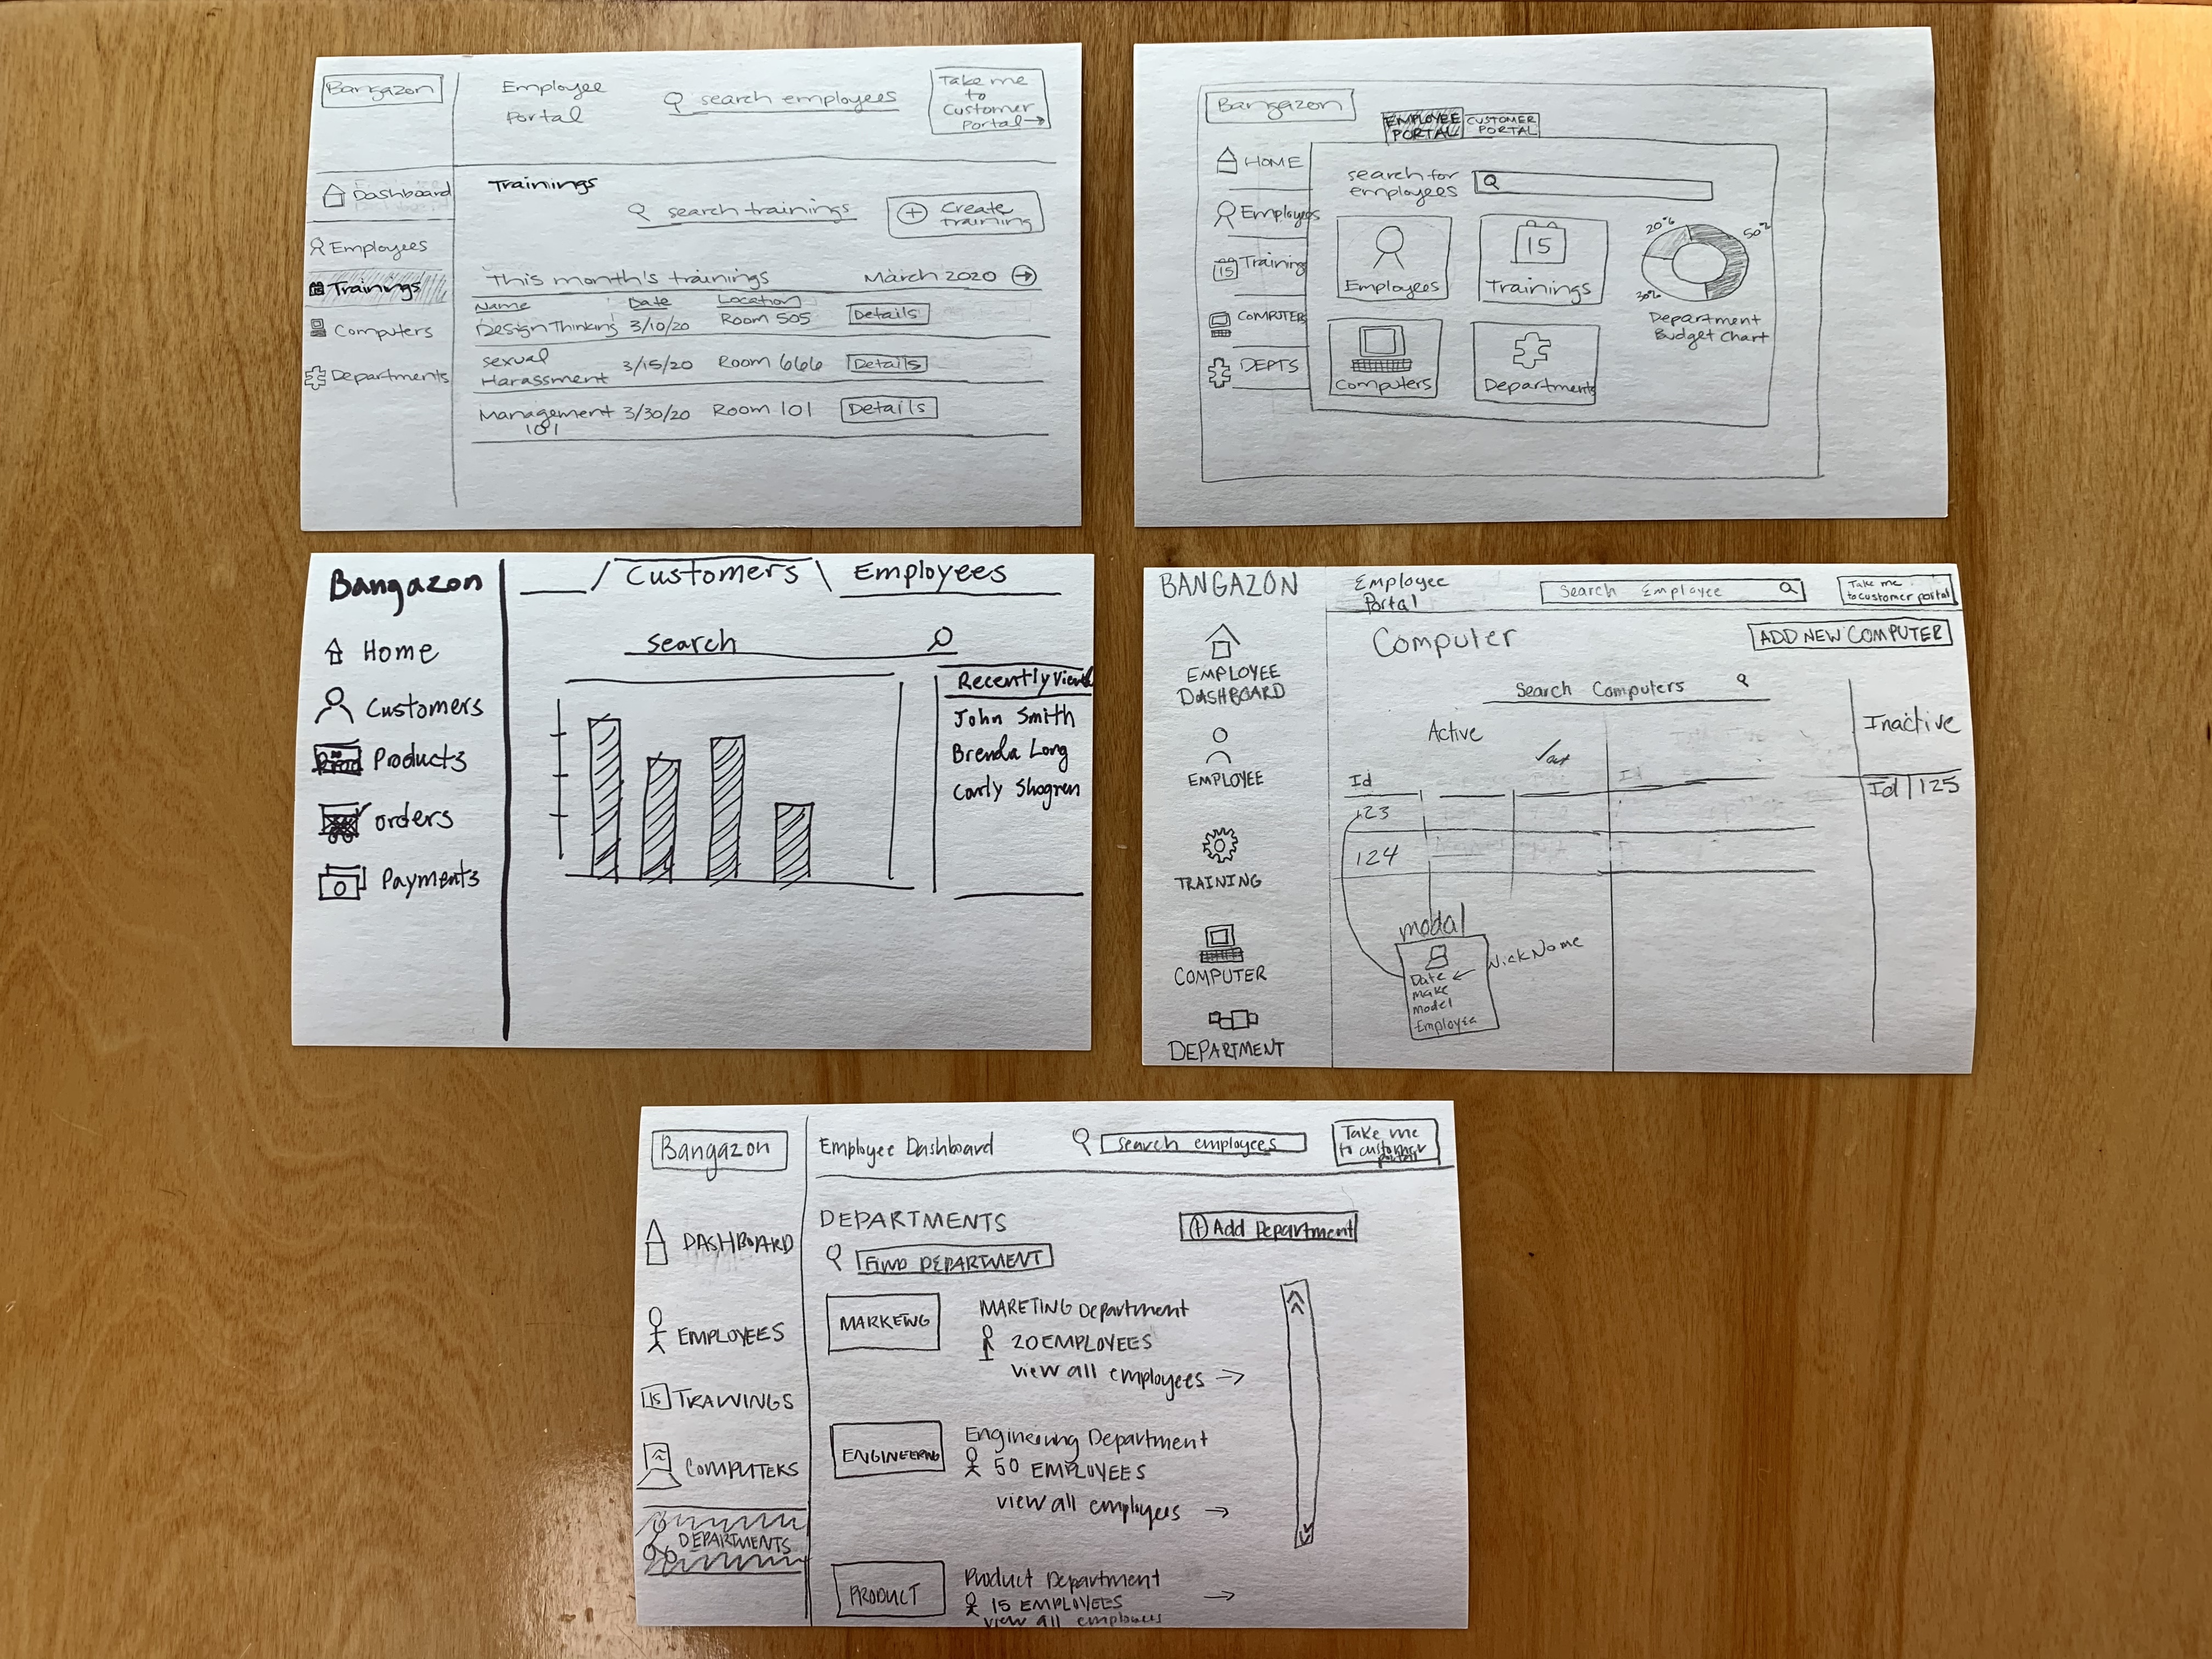 Bangazon
Employee
Portal
search employees
Take me
to
Customer
Portal→
Dashboard
Employees
15 Trainings
Computers
Departments
Trainings
search trainings
+ Create
training
This month's trainings March 2020 →
Name Date Location
Design Thinking 3/10/20 Room 505 Details
Sexual
Harassment 3/15/20 Room 666 Details
Management 3/30/20 Room 101 Details
101
Bangazon
EMPLOYEE
PORTAL
CUSTOMER
PORTAL
HOME
Employees
15 Training
COMPUTERS
DEPTS
search for
employees
Employees
15
Trainings
Computers
Departments
20%
50%
30%
Department
Budget Chart
Bangazon
Home
Customers
Products
orders
Payments
Customers
Employees
search
Recently View
John Smith
Brenda Long
Carly Shogren
BANGAZON
EMPLOYEE
DASHBOARD
EMPLOYEE
TRAINING
COMPUTER
DEPARTMENT
Employee
Portal
Search Employee
Take me
to customer portal
Computer
ADD NEW COMPUTER
Search Computers
Active
Inactive
Id
Id
123
124
Id 125
modal
NickName
Date ←
make
model
Employee
Bangazon
DASHBOARD
EMPLOYEES
15 TRAININGS
COMPUTERS
DEPARTMENTS
Employee Dashboard
search employees
Take me
to customer
portal
DEPARTMENTS
+ Add Department
FIND DEPARTMENT
MARKETING
MARETING Department
20 EMPLOYEES
view all employees →
ENGINEERING
Engineering Department
50 EMPLOYEES
view all employees →
PRODUCT
Product Department
15 EMPLOYEES →
view all employees